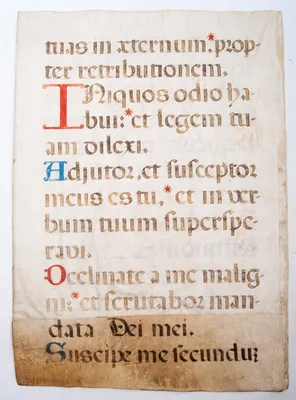 tuas in æternum,* prop
ter retributionem.
INiquos odio ha
bui:* et legem tu
am dilexi.
Adjutor, et susceptor
meus es tu,* et in ver
bum tuum superspe
ravi.
Declinate à me malig
ni:* et scrutabor man
data Dei mei.
Suscipe me secundũ